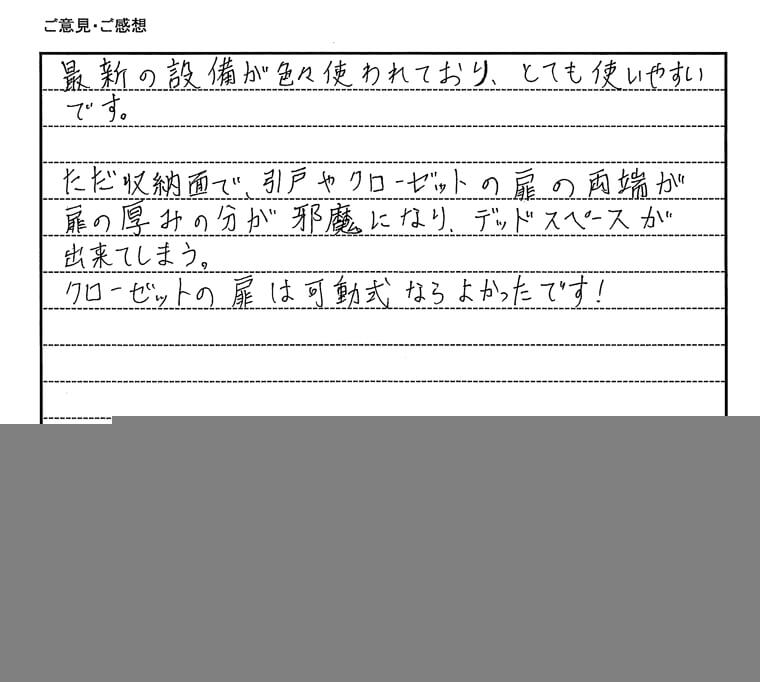 ご意見・ご感想
最新の設備が色々使われており、とても使いやすい
です。
ただ収納面で、引戸やクローゼットの扉の両端が
扉の厚みの分が邪魔になり、デッドスペースが
出来てしまう。
クローゼットの扉は可動式ならよかったです!